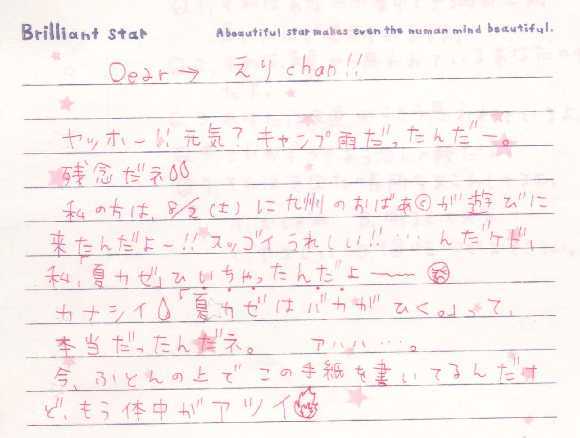 Brilliant star
A beautiful star makes even the numan mind beautiful.
Dear → えり chan!!
ヤッホー!! 元気? キャンプ雨だったんだー。
残念だネ
私の方は、8/2(土)に九州のおばあⓒが遊びに
来たんだよ〜!! スッゴイうれしい!! ……んだケド、
私、「夏カゼ」ひいちゃったんだよ〜〜
カナシイ「夏カゼはバカがひく。」って、
本当だったんだネ。 アハハ…。
今、ふとんの上でこの手紙を書いてるんだけ
ど、もう体中がアツイ